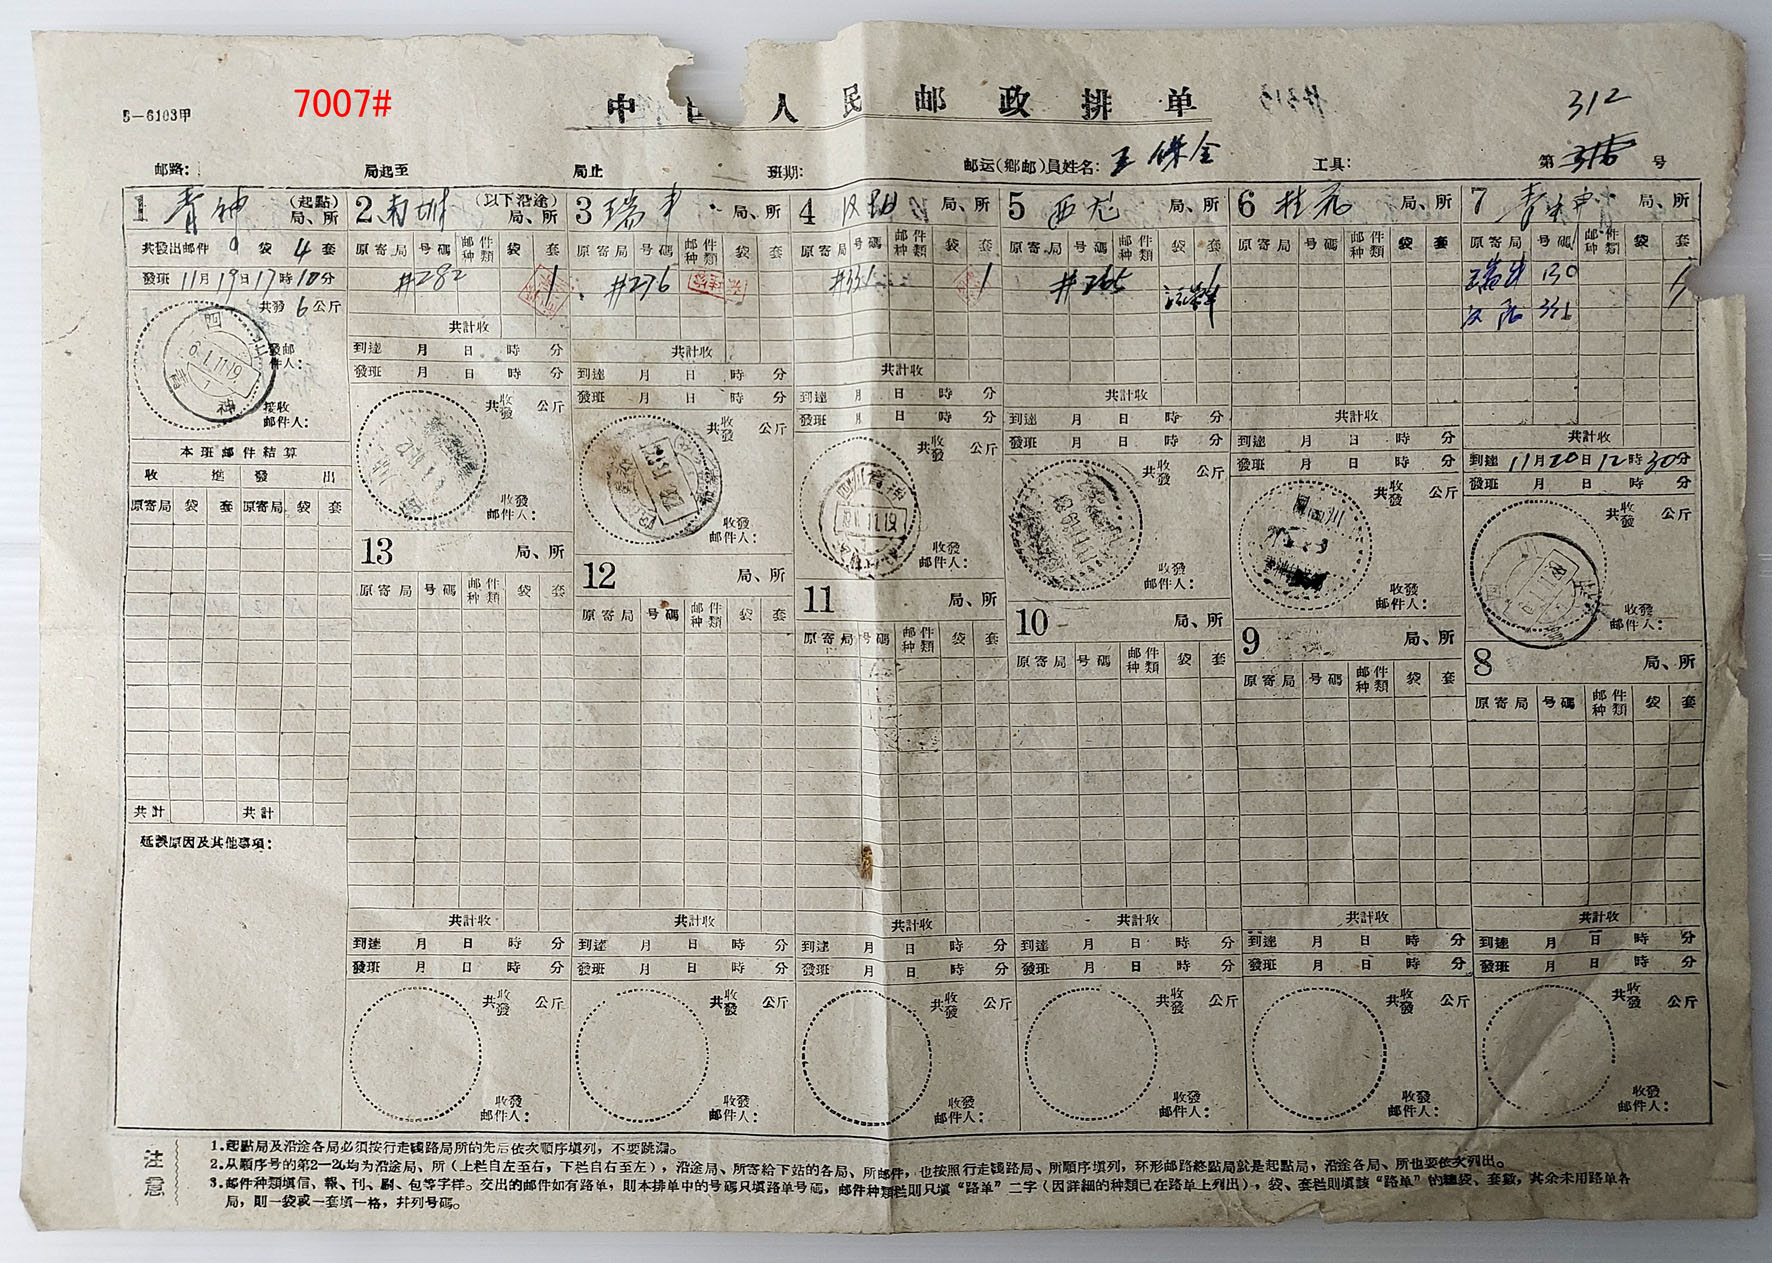 7007#
5—6103甲
中 人民邮政排单
312
邮路： 局起至 局止 班期： 邮运(鄉邮)員姓名：王保全 工具： 第 号
1 青神 (起點)局、所
共發出邮件 0 袋 4 套
發班 11月19日17時10分
共發 6 公斤
發邮件人：
接收邮件人：
四川 青神 61.11.19
本班邮件結算
收進 發出
原寄局 袋 套 原寄局 袋 套
共計 共計
延誤原因及其他事項：
2 南城 (以下沿途)局、所
原寄局 号碼 邮件种類 袋 套
#282 1
共計收
到達 月 日 時 分
發班 月 日 時 分
共收發 公斤
收發邮件人：
3 瑞丰 局、所
原寄局 号碼 邮件种類 袋 套
#276
共計收
到達 月 日 時 分
發班 月 日 時 分
共收發 公斤
收發邮件人：
4 汉阳 局、所
原寄局 号碼 邮件种類 袋 套
#331 1
共計收
到達 月 日 時 分
發班 月 日 時 分
共收發 公斤
收發邮件人：
四川青神
5 西龙 局、所
原寄局 号碼 邮件种類 袋 套
#265 1
共計收
到達 月 日 時 分
發班 月 日 時 分
共收發 公斤
收發邮件人：
6 桂花 局、所
原寄局 号碼 邮件种類 袋 套
共計收
到達 月 日 時 分
發班 月 日 時 分
共收發 公斤
收發邮件人：
7 青神 局、所
原寄局 号碼 邮件种類 袋 套
瑞丰 130
共計收
到達 11月20日12時30分
發班 月 日 時 分
共收發 公斤
收發邮件人：
13 局、所
原寄局 号碼 邮件种類 袋 套
共計收
到達 月 日 時 分
發班 月 日 時 分
共收發 公斤
收發邮件人：
12 局、所
原寄局 号碼 邮件种類 袋 套
共計收
到達 月 日 時 分
發班 月 日 時 分
共收發 公斤
收發邮件人：
11 局、所
原寄局 号碼 邮件种類 袋 套
共計收
到達 月 日 時 分
發班 月 日 時 分
共收發 公斤
收發邮件人：
10 局、所
原寄局 号碼 邮件种類 袋 套
共計收
到達 月 日 時 分
發班 月 日 時 分
共收發 公斤
收發邮件人：
9 局、所
原寄局 号碼 邮件种類 袋 套
共計收
到達 月 日 時 分
發班 月 日 時 分
共收發 公斤
收發邮件人：
8 局、所
原寄局 号碼 邮件种類 袋 套
共計收
到達 月 日 時 分
發班 月 日 時 分
共收發 公斤
收發邮件人：
注意
1.起點局及沿途各局必須按行走綫路局所的先后依次順序填列，不要跳漏。
2.从順序号的第2—26均为沿途局、所（上栏自左至右，下栏自右至左），沿途局、所寄給下站的各局、所邮件，也按照行走綫路局、所順序填列，环形邮路終點局就是起點局，沿途各局、所也要依次列出。
3.邮件种類填信、報、刊、刷、包等字样。交出的邮件如有路单，則本排单中的号碼只填路单号碼，邮件种類栏則只填“路单”二字（因詳細的种類已在路单上列出），袋、套栏則填該“路单”的總袋、套數，其余未用路单各
局，則一袋或一套填一格，幷列号碼。